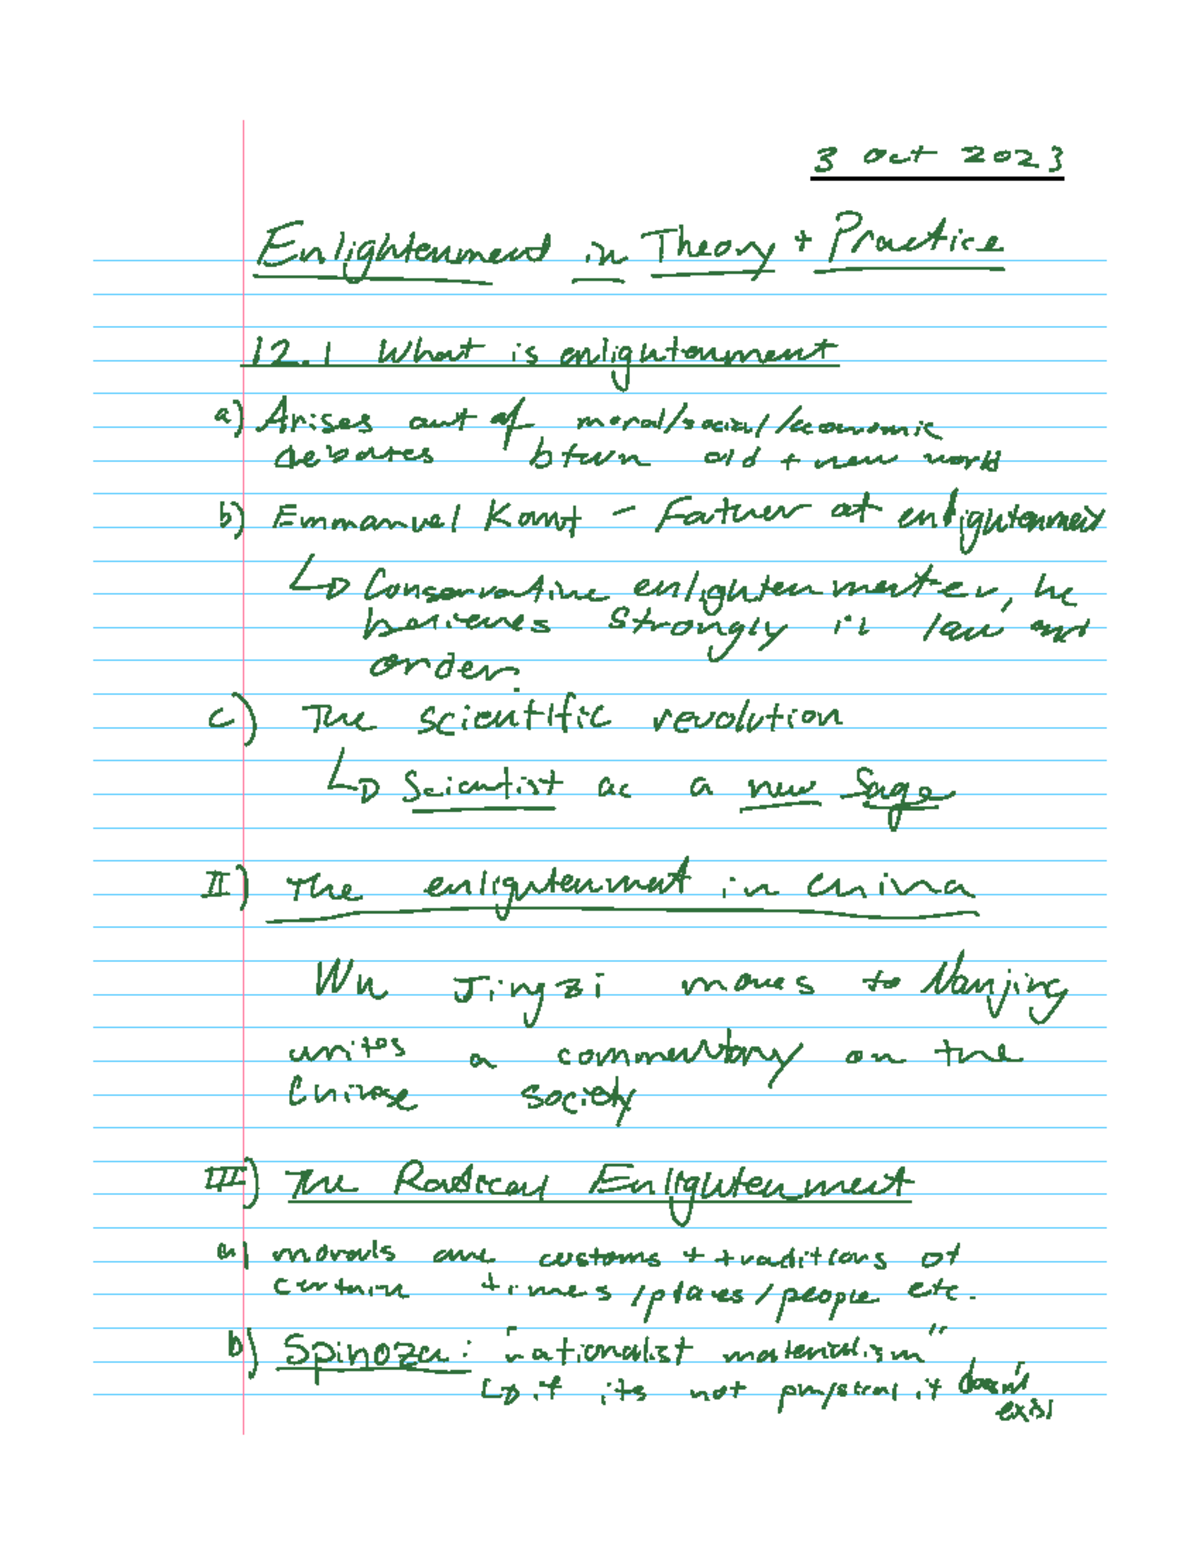 3 Oct 2023
Enlightenment in Theory + Practice
12.1 What is enlightenment
a) Arises out of moral/social/economic
debates btwn old + new world
b) Emmanuel Kant - Father of enlightenment
↳ Conservative enlightenmenter, he
believes strongly in law and
order.
c) The scientific revolution
↳ Scientist as a new Sage
II) The enlightenment in China
Wu Jingzi moves to Nanjing
writes a commentary on the
Chinese society
III) The Radical Enlightenment
a) morals are customs + traditions of
certain times/places/people etc.
b) Spinoza: "rationalist materialism"
↳ if its not physical it doesn't
exist